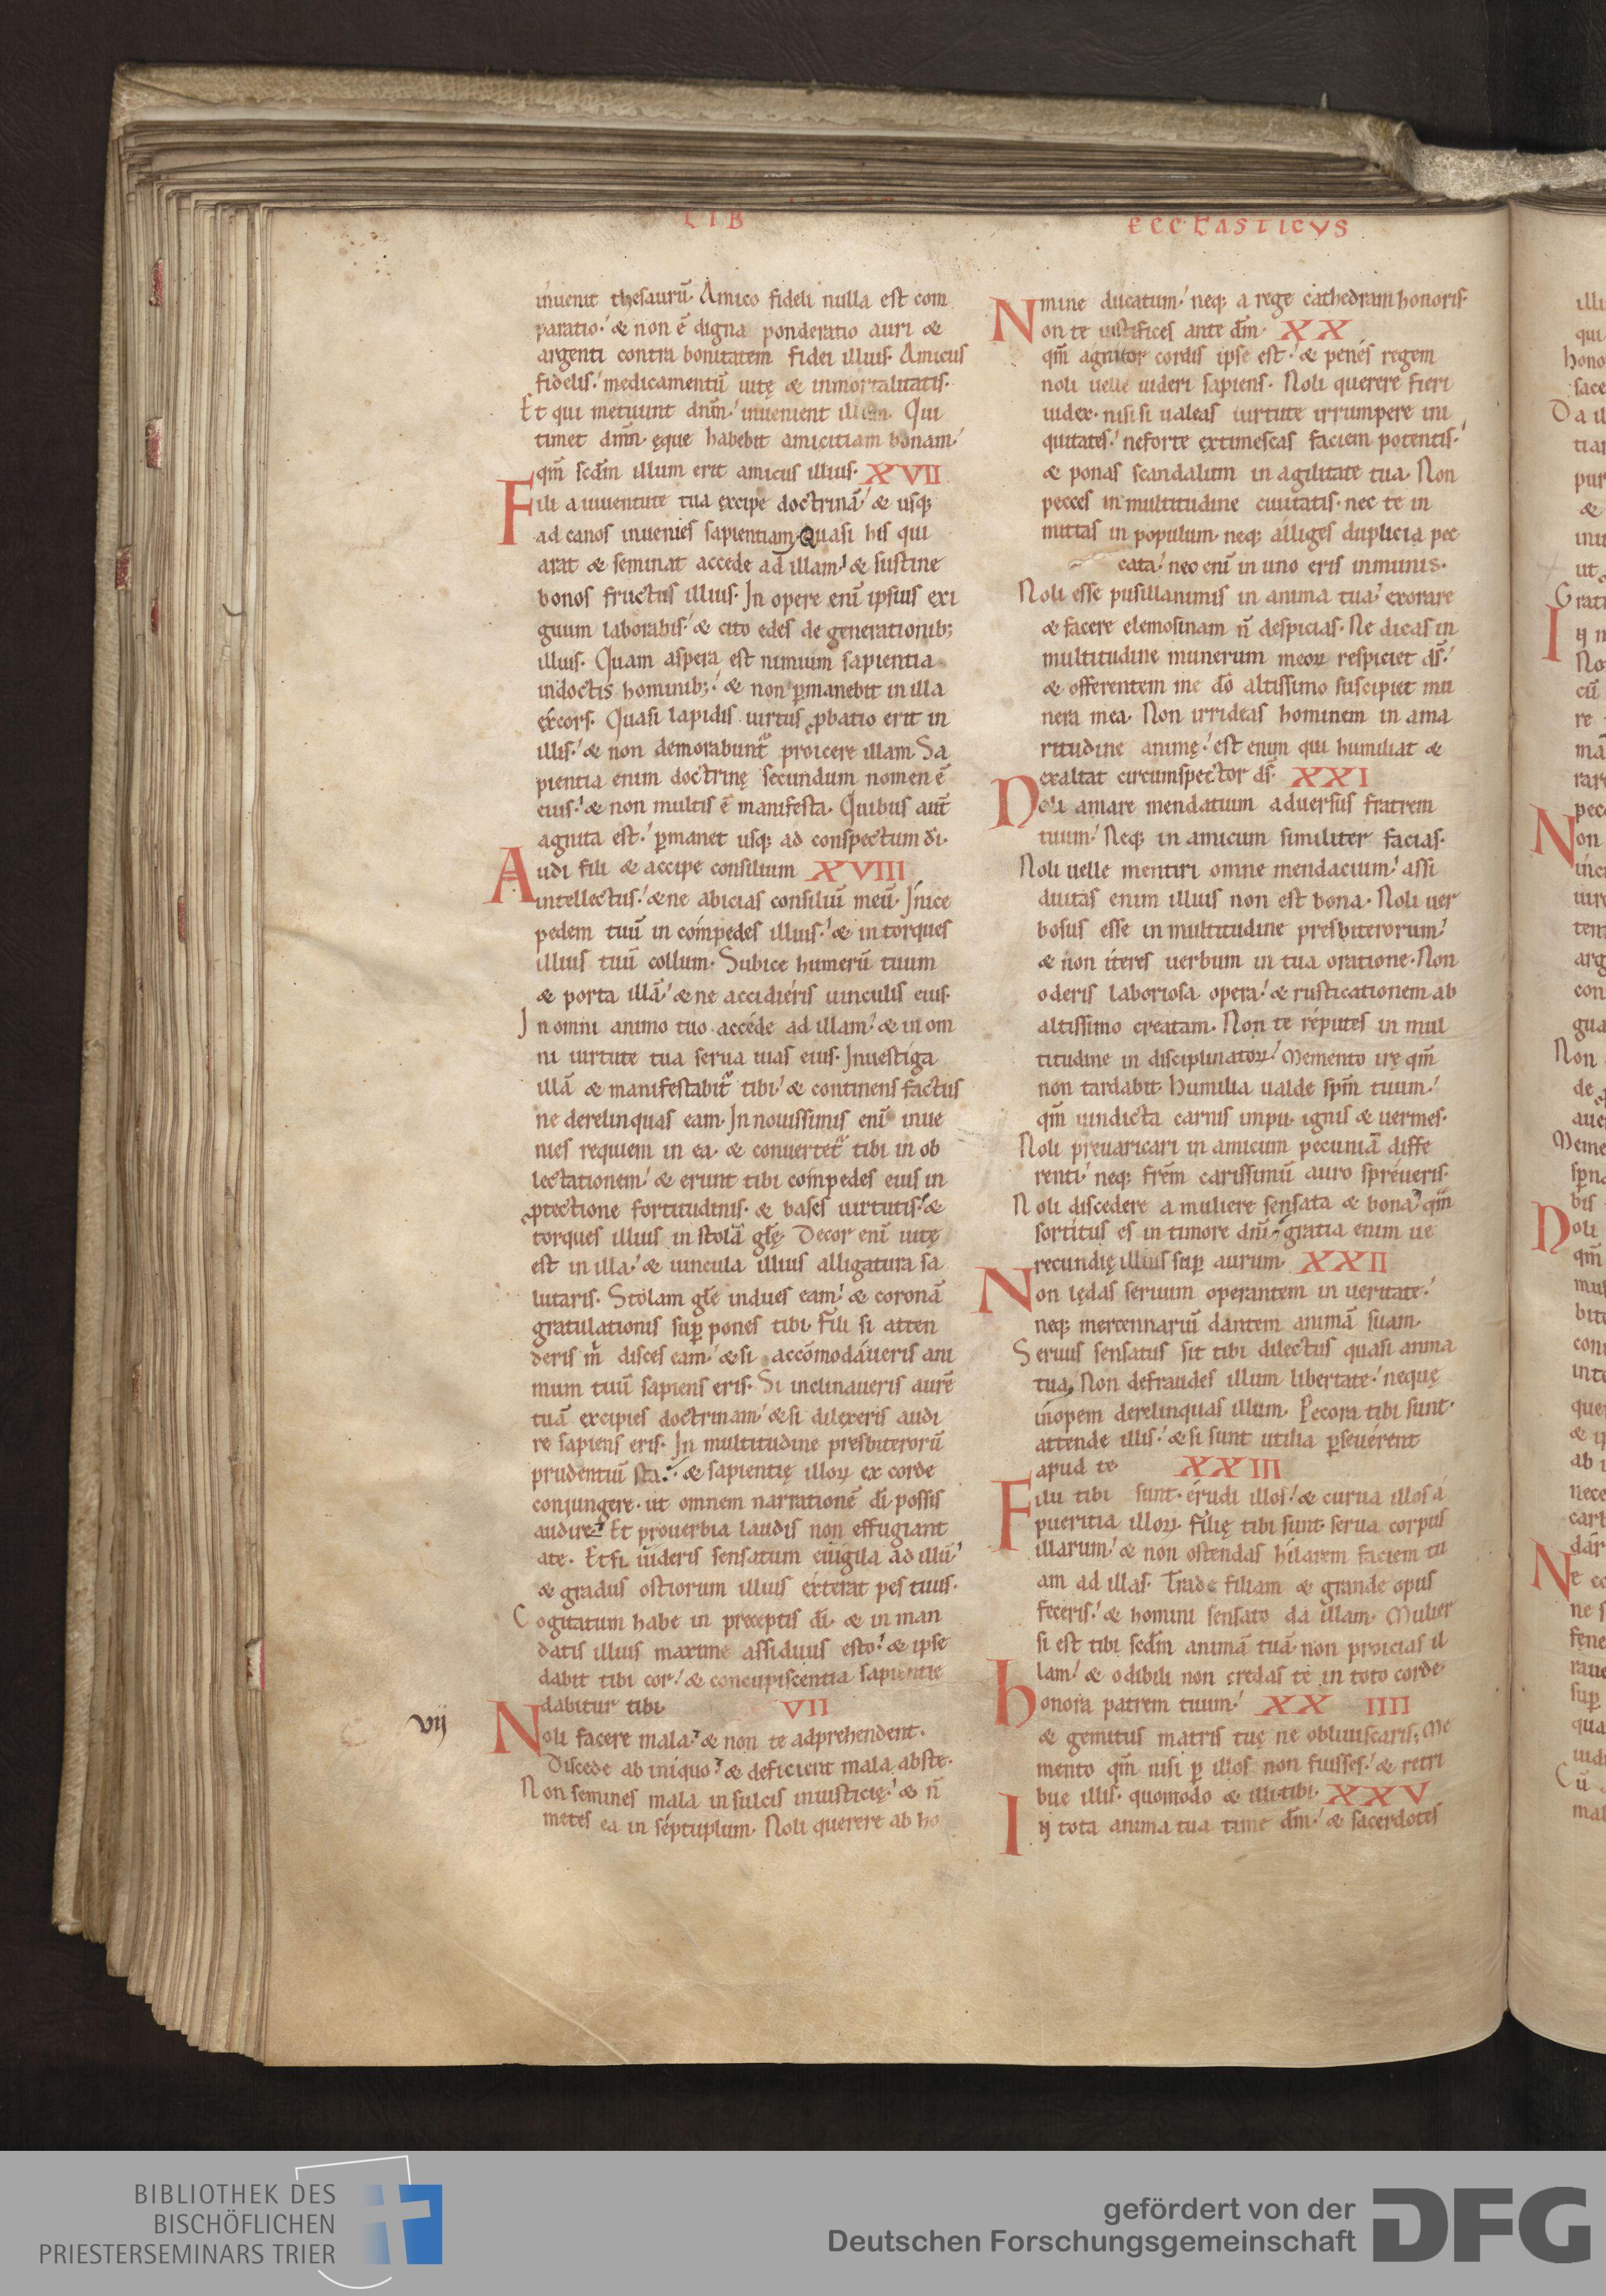 LIB
ECCĽASTICVS
inuenit thesaurū. Amico fideli nulla est com
paratio. & non ē digna ponderatio auri &
argenti contra bonitatem fidei illius. Amicus
fidelis. medicamentū uitę & inmortalitatis.
Et qui metuunt dnm̄. inuenient illum. Qui
timet dnm̄. ęque habebit amicitiam bonam.
qm̄ scdm̄ illum erit amicus illius. XVII
Fili a iuuentute tua excipe doctrinā. & usq;
ad canos inuenies sapientiam. Quasi his qui
arat & seminat accede ad illam. & sustine
bonos fructus illius. In opere enī ipsius exi
guum laborabis. & cito edes de generationib;
illius. Quam aspera est nimium sapientia
indoctis hominib;. & non ꝑmanebit in illa
excors. Quasi lapidis uirtus ꝓbatio erit in
illis. & non demorabunt᷑ proicere illam. Sa
pientia enim doctrinę secundum nomen ē
eius. & non multis ē manifesta. Quibus aut̄
agnita est. ꝑmanet usq; ad conspectum dī.
Audi fili & accipe consilium XVIII
intellectus. & ne abicias consiliū meū. Inice
pedem tuū in compedes illius. & in torques
illius tuū collum. Subice humerū tuum
& porta illā. & ne accidieris uinculis eius.
In omni animo tuo accede ad illam. & in om
ni uirtute tua serua uias eius. Inuestiga
illā & manifestabit᷑ tibi. & continens factus
ne derelinquas eam. In nouissimis enī inue
nies requiem in ea. & conuertet᷑ tibi in ob
lectationem. & erunt tibi compedes eius in
ꝓtectione fortitudinis. & bases uirtutis. &
torques illius in stolā glę. Decor enī uitę
est in illa. & uincula illius alligatura sa
lutaris. Stolam glę indues eam. & coronā
gratulationis suꝑ pones tibi. Fili si atten
deris m̄ disces eam. & si accōmodaueris ani
mum tuū sapiens eris. Si inclinaueris aurē
tuā excipies doctrinam. & si dilexeris audi
re sapiens eris. In multitudine presbiterorū
prudentiū sta. & sapientię illoꝝ ex corde
conjungere. ut omnem narrationē dī possis
audire. Et prouerbia laudis non effugiant
a te. Et si uideris sensatum euigila ad illū.
& gradus ostiorum illius exterat pes tuus.
Cogitatum habe in preceptis dī. & in man
datis illius maxime assiduus esto. & ipse
dabit tibi cor. & concupiscentia sapientie
dabitur tibi. VII
vij
Noli facere mala. & non te adprehendent.
Discede ab iniquo. & deficient mala abs te.
Non semines mala in sulcis iniusticię. & n̄
metes ea in septuplum. Noli querere ab ho
mine ducatum. neq; a rege cathedram honoris.
Non te iustifices ante dm̄. XX
qm̄ agnitor cordis ipse est. & penes regem
noli uelle uideri sapiens. Noli querere fieri
iudex. nisi si ualeas uirtute irrumpere ini
quitates. ne forte extimescas faciem potentis.
& ponas scandalum in agilitate tua. Non
pecces in multitudine ciuitatis. nec te in
mittas in populum. neq; alliges duplicia pec
cata. nec enī in uno eris inmunis.
Noli esse pusillanimis in anima tua. exorare
& facere elemosinam n̄ despicias. Ne dicas in
multitudine munerum meoꝝ respiciet ds̄.
& offerentem me dō altissimo suscipiet mu
nera mea. Non irrideas hominem in ama
ritudine animę. est enim qui humiliat &
exaltat circumspector ds̄. XXI
Noli amare mendatium aduersus fratrem
tuum. Neq; in amicum similiter facias.
Noli uelle mentiri omne mendacium. assi
duitas enim illius non est bona. Noli uer
bosus esse in multitudine presbiterorum.
& non iteres uerbum in tua oratione. Non
oderis laboriosa opera. & rusticationem ab
altissimo creatam. Non te reputes in mul
titudine in disciplinatoꝝ. Memento irę qm̄
non tardabit. Humilia ualde spm̄ tuum.
qm̄ uindicta carnis impii. ignis & uermes.
Noli preuaricari in amicum pecuniā diffe
renti. neq; frēm carissimū auro spreueris.
Noli discedere a muliere sensata & bona. qm̄
sortitus es in timore dnī. gratia enim ue
recundię illius suꝑ aurum. XXII
Non lędas seruum operantem in ueritate.
neq; mercennariū dantem animā suam.
Seruus sensatus sit tibi dilectus quasi anima
tua. Non defraudes illum libertate. nequę
inopem derelinquas illum. Pecora tibi sunt.
attende illis. & si sunt utilia ꝑseuerent
apud te. XXIII
Filii tibi sunt. erudi illos. & curua illos a
pueritia illoꝝ. Filię tibi sunt. serua corpus
illarum. & non ostendas hilarem faciem tu
am ad illas. Trade filiam & grande opus
feceris. & homini sensato da illam. Mulier
si est tibi scdm̄ animā tuā. non proicias il
lam. & odibili non credas te in toto corde.
Honora patrem tuum. XX IIII
& gemitus matris tuę ne obliuiscaris. Me
mento qm̄ nisi ꝑ illos non fuisses. & retri
bue illis. quomodo & illi tibi. XXV
Ij tota anima tua time dm̄. & sacerdotes
BIBLIOTHEK DES
BISCHÖFLICHEN
PRIESTERSEMINARS TRIER
gefördert von der
Deutschen Forschungsgemeinschaft
DFG